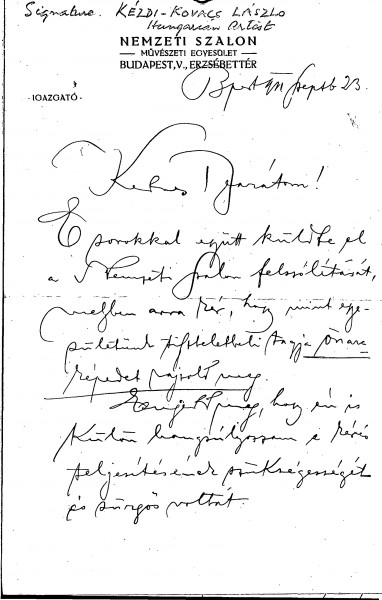 Signature. KÉZDI-KOVÁCS LÁSZLÓ
Hungarian Artist
NEMZETI SZALON
MŰVÉSZETI EGYESÜLET
BUDAPEST, V., ERZSÉBETTÉR
- IGAZGATÓ -
Bpest 911 Septb 23.
Kedves Barátom!
E sorokkal együtt küldte el
a Nemzeti Szalon felszólítását,
melyben arra kér, hogy mint egye-
sületünk tiszteletbeli tagja önarc-
képedet rajzold meg.
Engedd meg, hogy én is
külön hangsúlyozzam e kérés
teljesítésének szükségességét
és sürgős voltát.